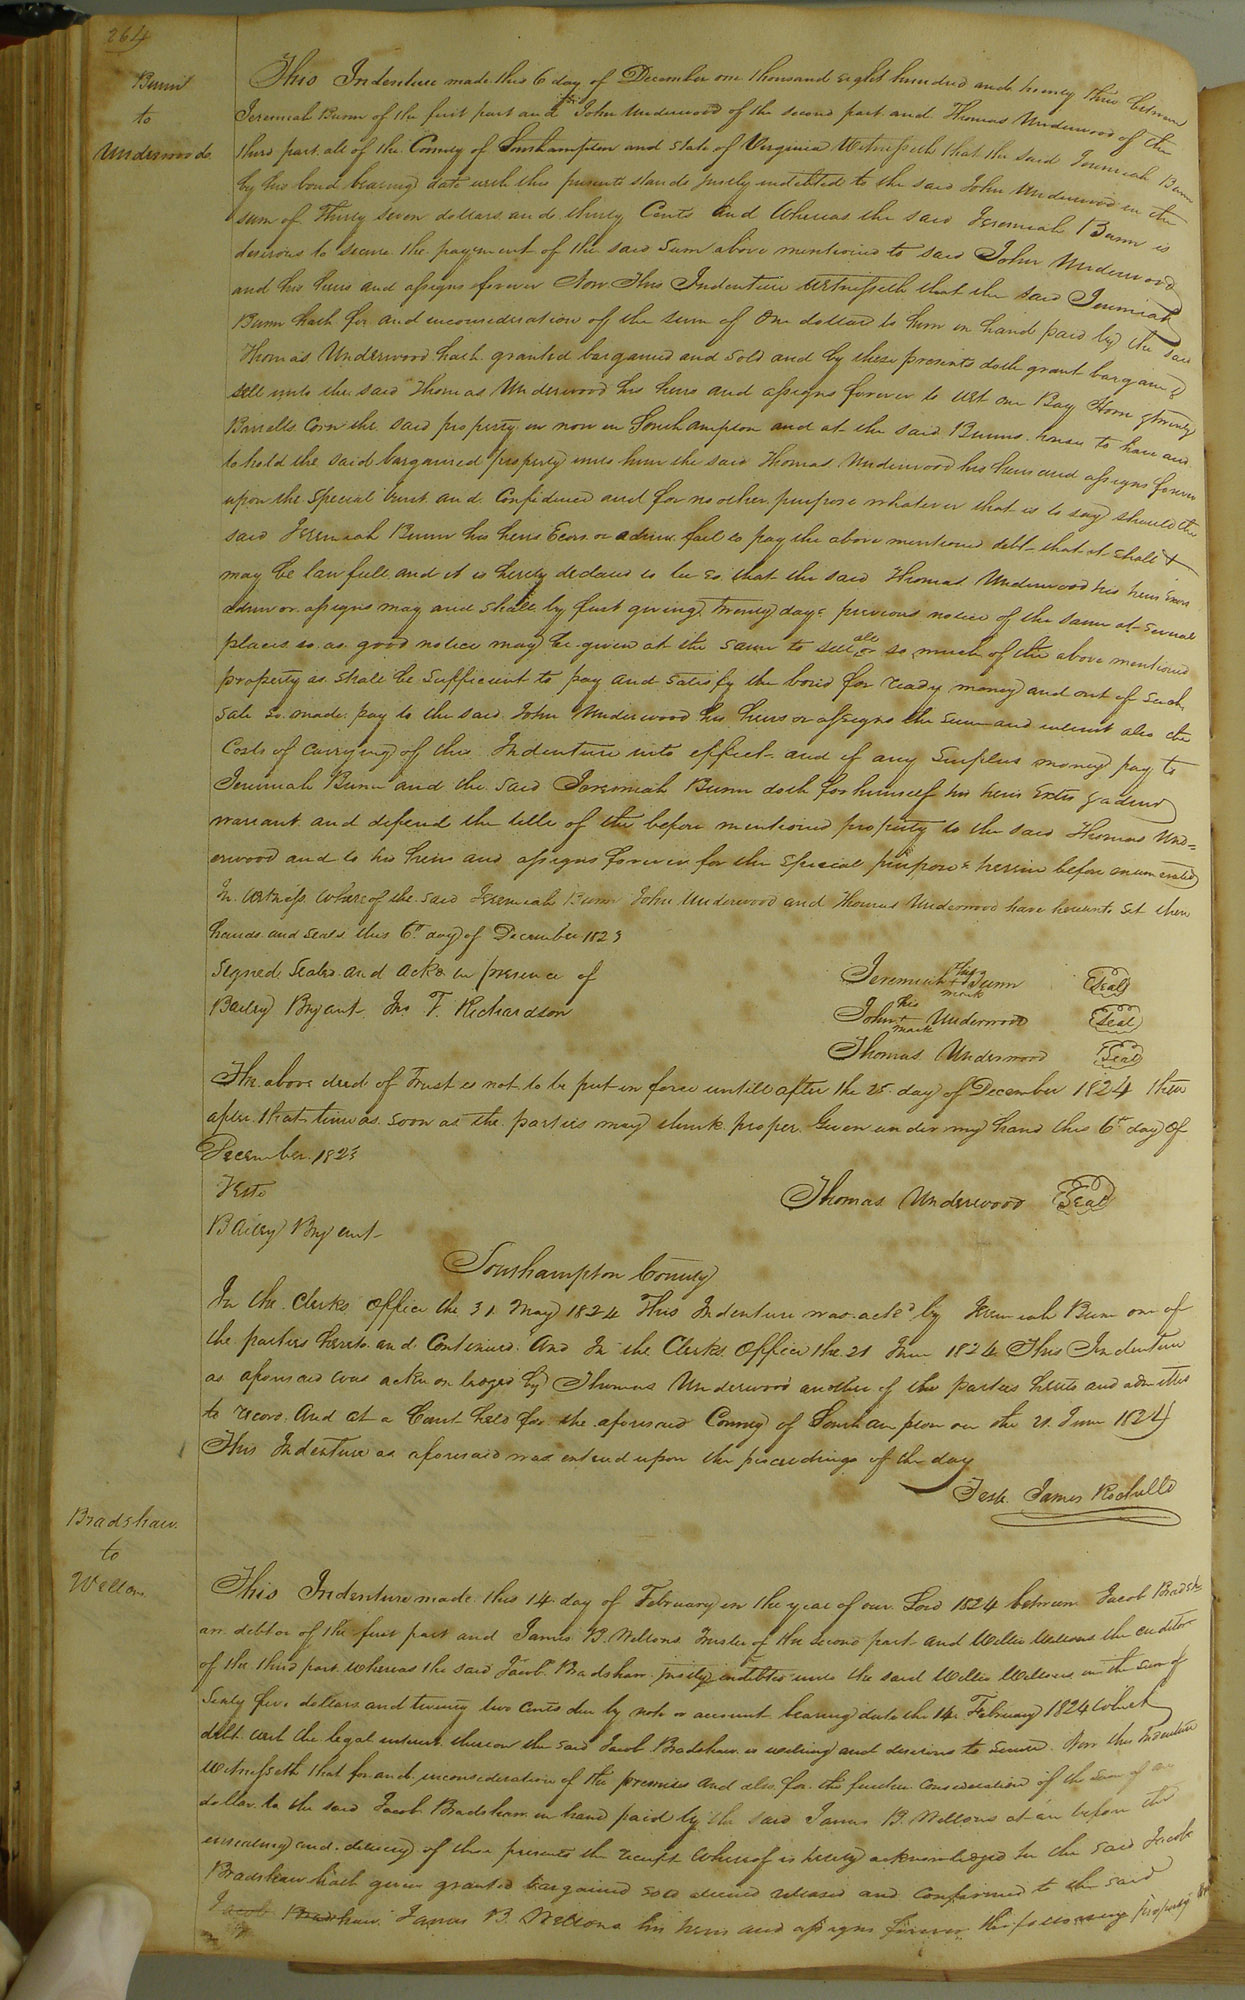 264
Bunn
to
Underwoods
This Indenture made this 6 day of December one thousand eight hundred and twenty three between
Jeremiah Bunn of the first part and John Underwood of the second part and Thomas Underwood of the
third part all of the County of Southampton and state of Virginia Witnesseth that the said Jeremiah Bunn
by his bond bearing date with this presents stands justly indebted to the said John Underwood in the
sum of Thirty seven dollars and thirty Cents and Whereas the said Jeremiah Bunn is
desirous to secure the payment of the said sum above mentioned to said John Underwood
and his heirs and assigns forever Now This Indenture Witnesseth that the said Jeremiah
Bunn hath for and inconsideration of the sum of One dollar to him in hand paid by the said
Thomas Underwood hath granted bargained and sold and by these presents doth grant bargain &
sell unto the said Thomas Underwood his heirs and assigns forever to wit one Bay Horse & twenty
Barrells Corn the said property is now in Southampton and at the said Bunns house to have and
to hold the said bargained property unto him the said Thomas Underwood his heirs and assigns forever
upon the special trust and Confidence and for no other purpose whatever that is to say should the
said Jeremiah Bunn his heirs Ecors. or admrs fail to pay the above mentioned debt that it shall &
may be lawfull and it is hereby declared to be so that the said Thomas Underwood his heirs Exors
admrs or assigns may and shall by first giving Twenty days previous notice of the same at several
places so as good notice may be given at the same to sell all or so much of the above mentioned
property as shall be sufficient to pay and satisfy the bond for ready money and out of such
sale so made pay to the said John Underwood his heirs or assigns the sum and interest also the
Costs of carrying of this Indenture into effect and if any Surplus money pay to
Jeremiah Bunn and the said Jeremiah Bunn doth for himself his heirs Extrs & admrs
warrant and defend the title of the before mentioned property to the said Thomas Und=
erwood and to his heirs and assigns forever for the special purposes herein before enumerated
In Witness whereof the said Jeremiah Bunn John Underwood and Thomas Underwood have hereunto set their
hands and seals this 6th day of December 1823
Signed Sealed and ackd in presence of
Bailey Bryant Jno T. Richardson
Jeremiah his + mark Bunn Seal
John his + mark Underwood Seal
Thomas Underwood Seal
The above deed of Trust is not to be put in force untill after the 25 day of December 1824 then
after that time as soon as the parties may think proper Given under my hand this 6th day of
December 1823
Teste
Bailey Bryant
Thomas Underwood Seal
Southampton County
In the Clerks Office the 31 May 1824 This Indenture was ackd by Jeremiah Bunn one of
the parties hereto and Continued And In the Clerks Office the 21 June 1824 This Indenture
as aforesaid was acknowledged by Thomas Underwood another of the parties hereto and admitted
to record And at a Court held for the aforesaid County of Southampton on the 21 June 1824
This Indenture as aforesaid was entered upon the proceedings of the day
Teste James Rochelle
Bradshaw
to
Wellons
This Indenture made this 14 day of February in the year of our Lord 1824 between Jacob Bradshaw
an debtor of the first part and James B. Wellons Trustee of the second part and Willie Wellons the creditor
of the third part whereas the said Jacob Bradshaw justly indebted unto the said Willie Wellons in the sum of
Sixty five dollars and twenty two Cents due by note or account bearing date the 14 February 1824 which
debt with the legal interest thereon the said Jacob Bradshaw is willing and desirous to secure Now this Indenture
Witnesseth that for and inconsideration of the premises and also for the further consideration of the sum of one
dollar to the said Jacob Bradshaw in hand paid by the said James B. Wellons at or before the
ensealing and delivery of these presents the receipt Whereof is hereby acknowledged he the said Jacob
Bradshaw hath given granted bargained sold aliened released and confirmed to the said
Jacob Bradshaw James B. Wellons his heirs and assigns forever the following property